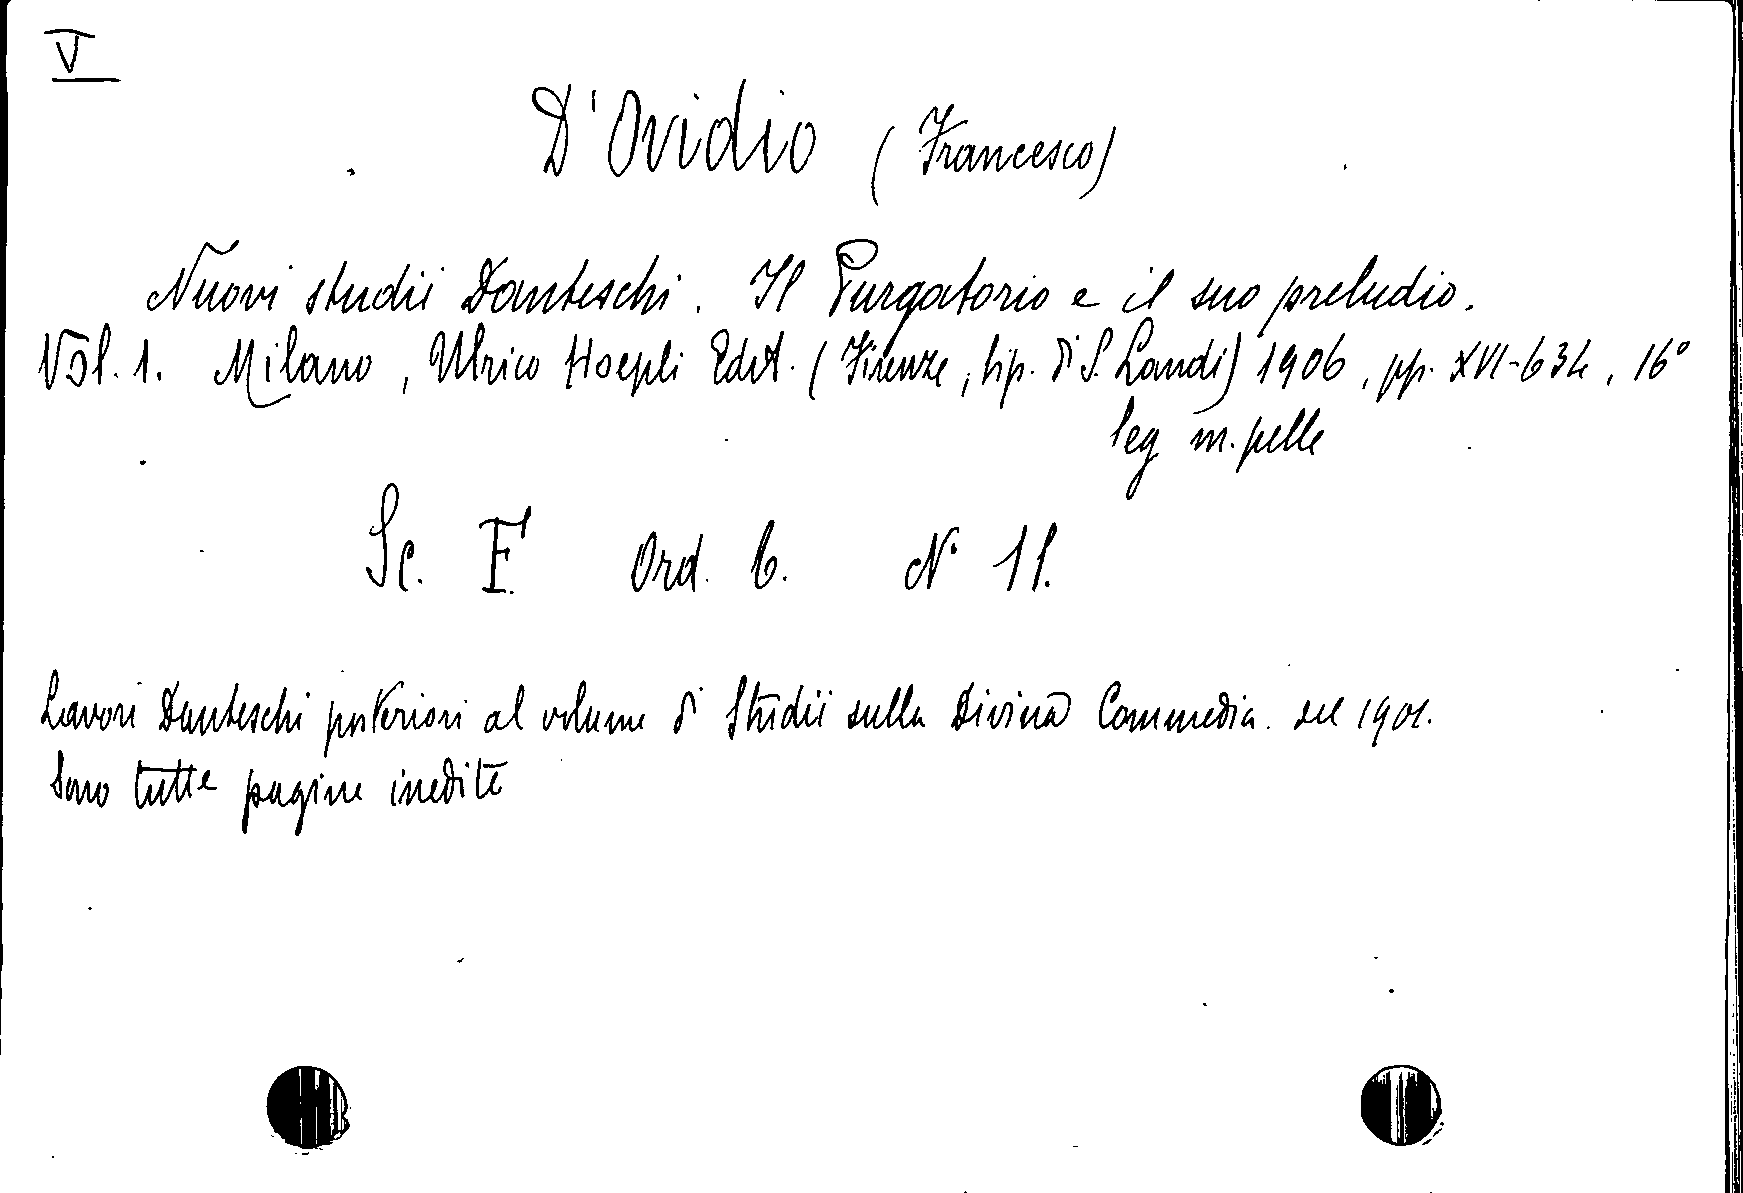 V
D'Ovidio (Francesco)
Nuovi studii Danteschi. Il Purgatorio e il suo preludio.
Vol. 1. Milano, Ulrico Hoepli Edit. (Firenze, tip. di S. Landi) 1906, pp. XVI-634, 16°
leg m. pelle
Sc. F. Ord. 6. N° 11.
Lavori Danteschi posteriori al volume di Studii sulla Divina Commedia. del 1901.
Sono tutte pagine inedite